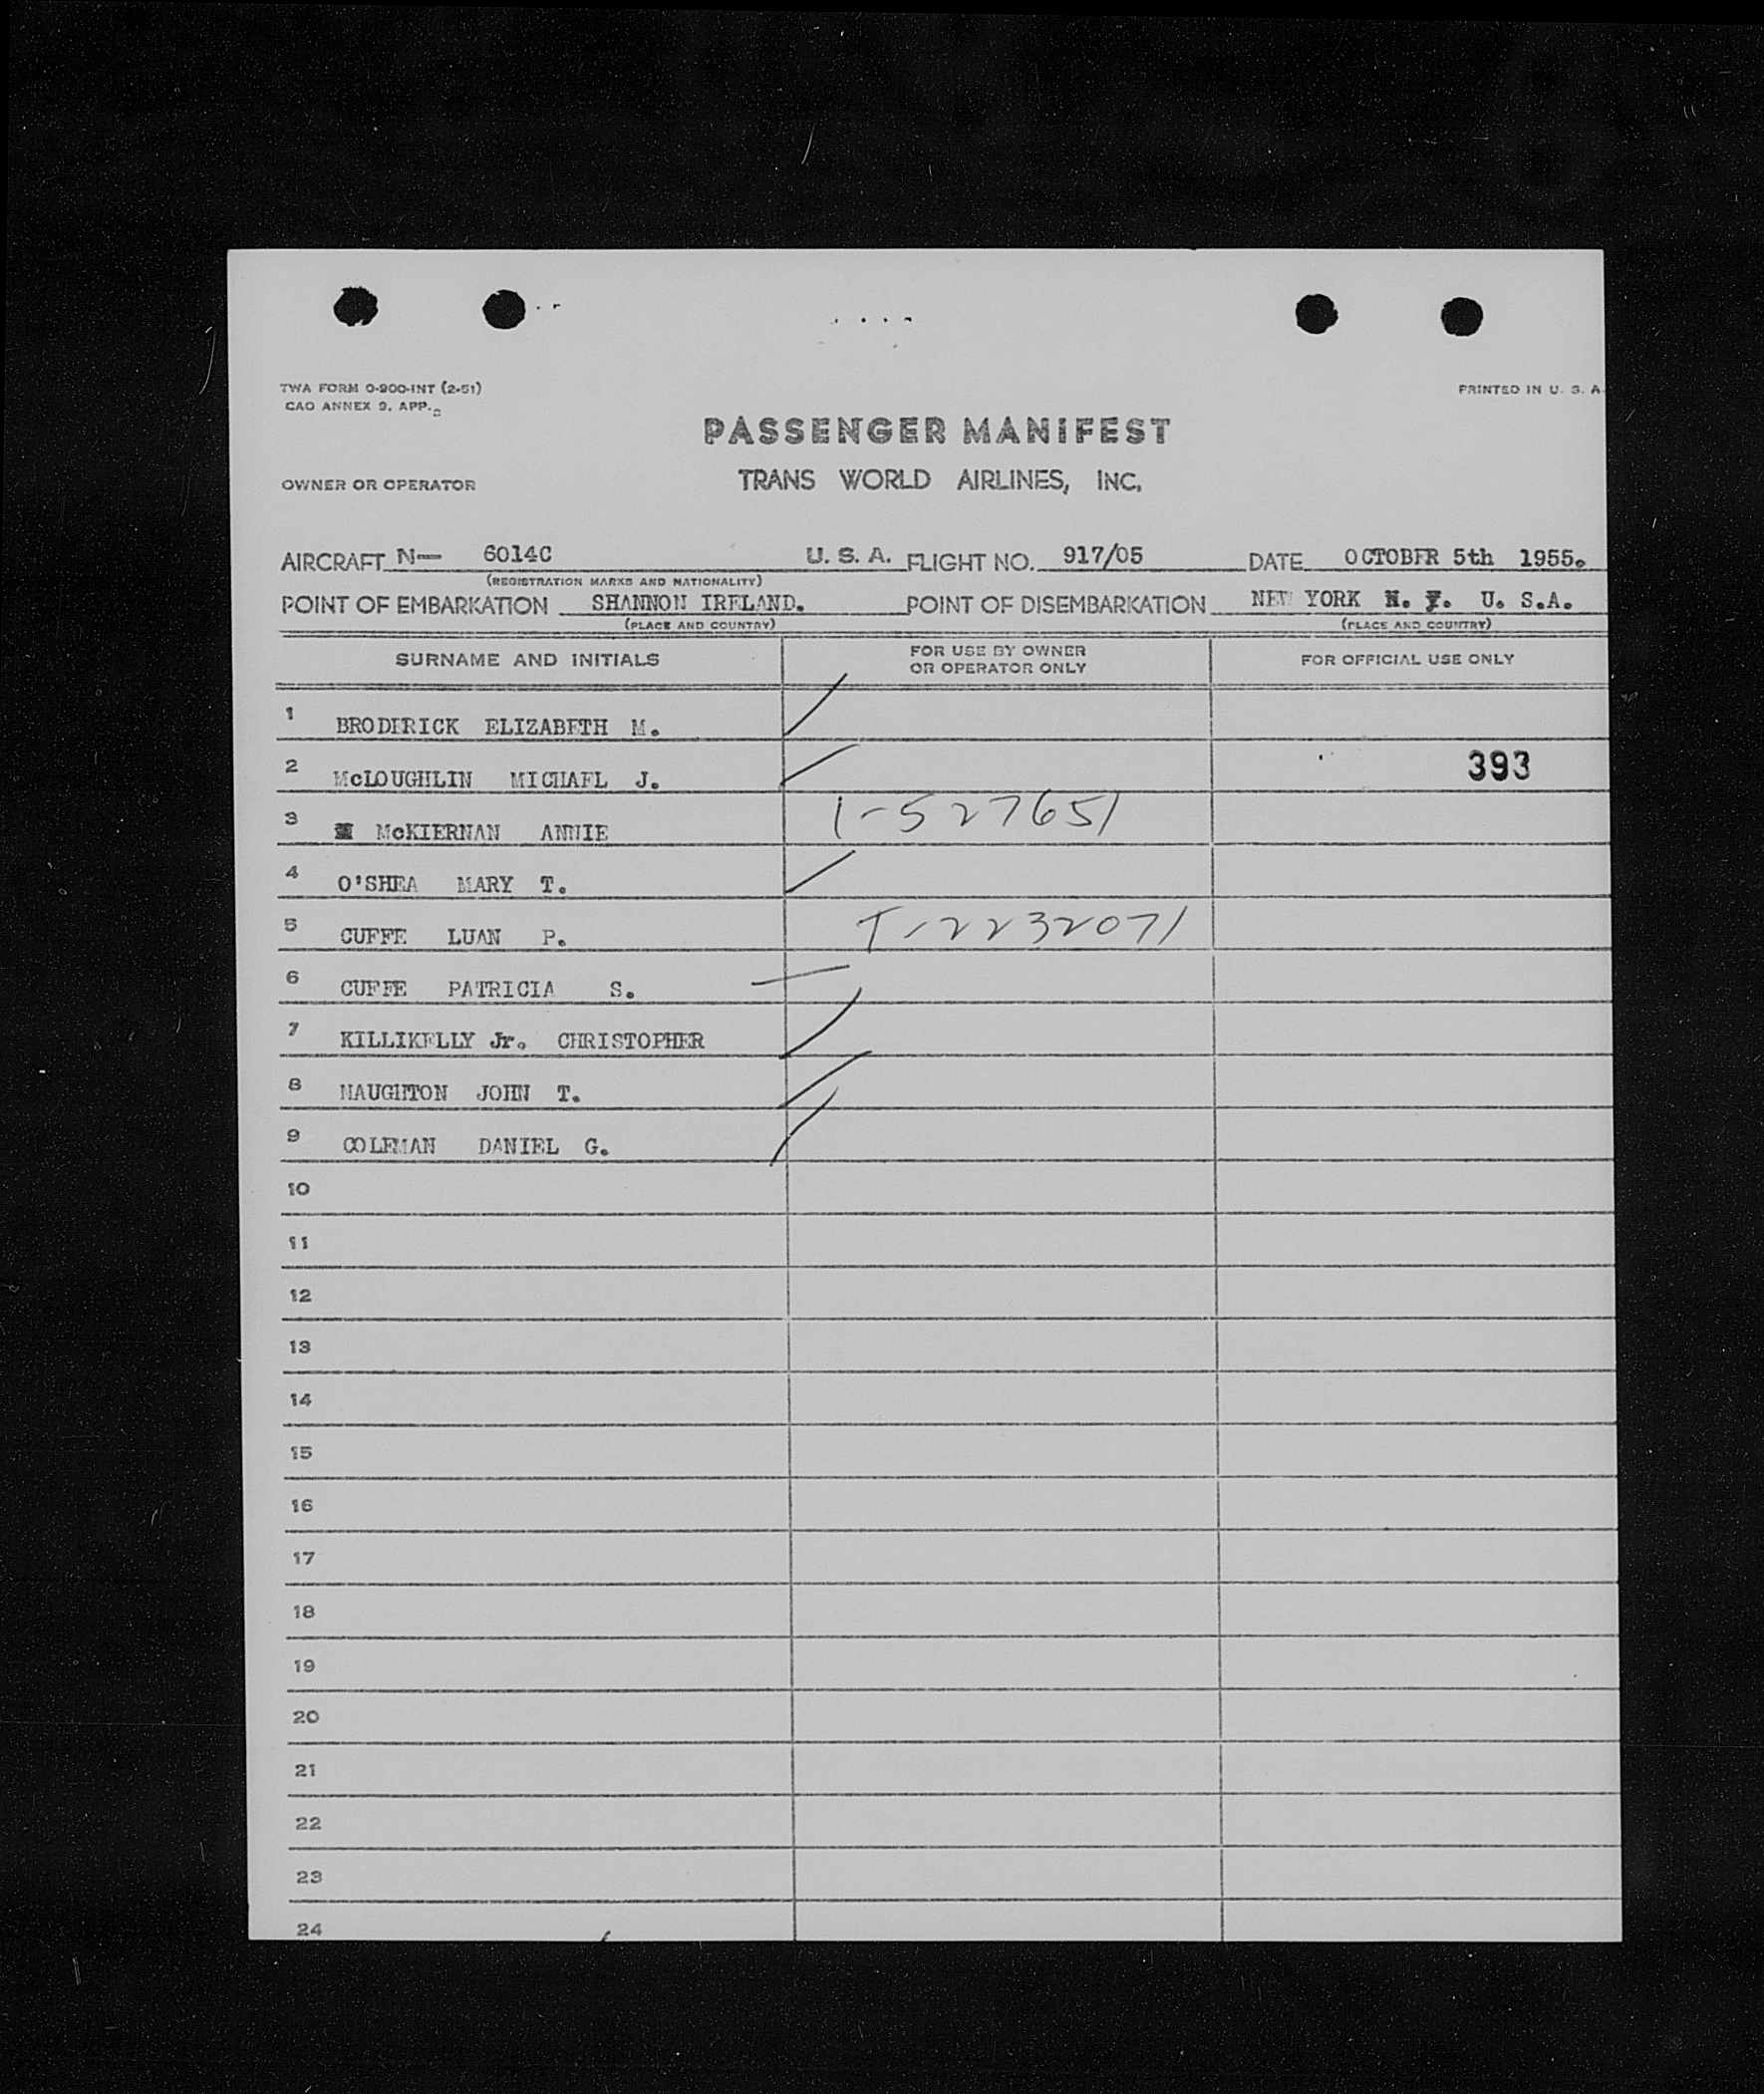 TWA FORM O-900-INT (2-51)
CAO ANNEX 9. APP.
PRINTED IN U. S. A.
PASSENGER MANIFEST
OWNER OR OPERATOR
TRANS WORLD AIRLINES, INC.
AIRCRAFT N— 6014C U. S. A. FLIGHT NO. 917/05 DATE OCTOBER 5th 1955.
(REGISTRATION MARKS AND NATIONALITY)
POINT OF EMBARKATION SHANNON IRELAND. POINT OF DISEMBARKATION NEW YORK N. Y. U. S.A.
(PLACE AND COUNTRY) (PLACE AND COUNTRY)
SURNAME AND INITIALS FOR USE BY OWNER OR OPERATOR ONLY FOR OFFICIAL USE ONLY
1 BRODERICK ELIZABETH M.
2 McLOUGHLIN MICHAEL J. 393
3 McKIERNAN ANNIE 1-527651
4 O'SHEA MARY T.
5 CUFFE LUAN P. T-2232071
6 CUFFE PATRICIA S.
7 KILLIKELLY Jr. CHRISTOPHER
8 NAUGHTON JOHN T.
9 COLEMAN DANIEL G.
10
11
12
13
14
15
16
17
18
19
20
21
22
23
24